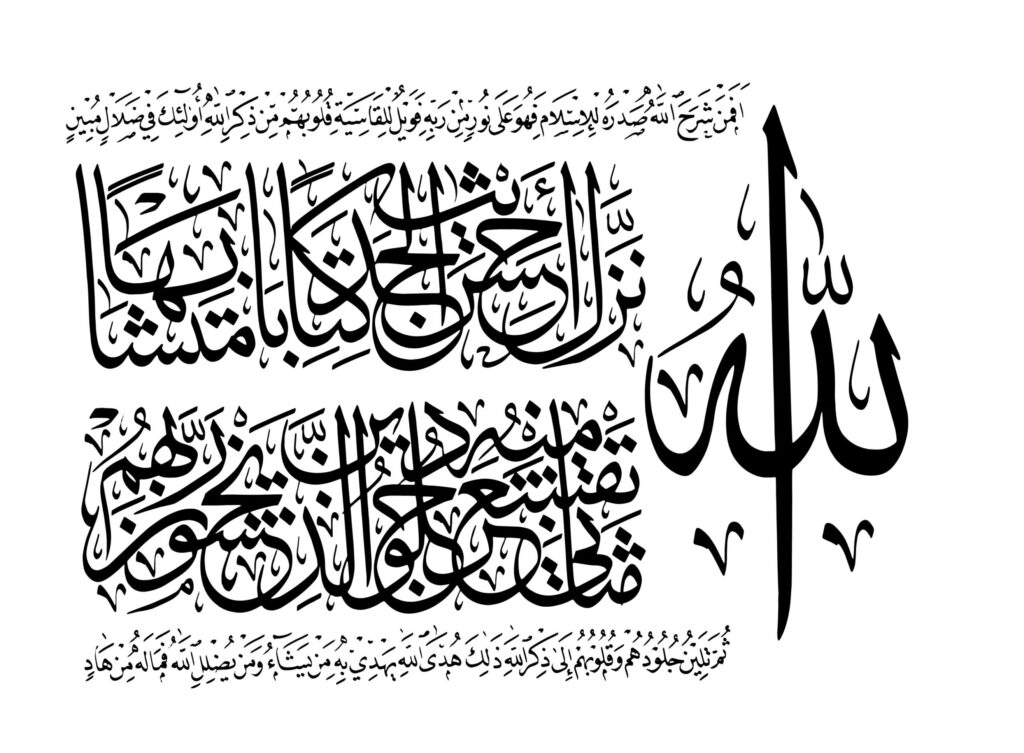 اَفَمَنْ شَرَحَ اللّٰهُ صَدْرَهُ لِلْاِسْلَامِ فَهُوَ عَلٰى نُورٍ مِنْ رَبِّهِ فَوَيْلٌ لِلْقَاسِيَةِ قُلُوبُهُمْ مِنْ ذِكْرِ اللّٰهِ أُولٰئِكَ فِي ضَلَالٍ مُبِينٍ
اللّٰهُ
نَزَّلَ أَحْسَنَ الْحَدِيثِ كِتَابًا مُتَشَابِهًا
مَثَانِيَ تَقْشَعِرُّ مِنْهُ جُلُودُ الَّذِينَ يَخْشَوْنَ رَبَّهُمْ
ثُمَّ تَلِينُ جُلُودُهُمْ وَقُلُوبُهُمْ إِلٰى ذِكْرِ اللّٰهِ ذٰلِكَ هُدَى اللّٰهِ يَهْدِي بِهِ مَنْ يَشَاءُ وَمَنْ يُضْلِلِ اللّٰهُ فَمَا لَهُ مِنْ هَادٍ